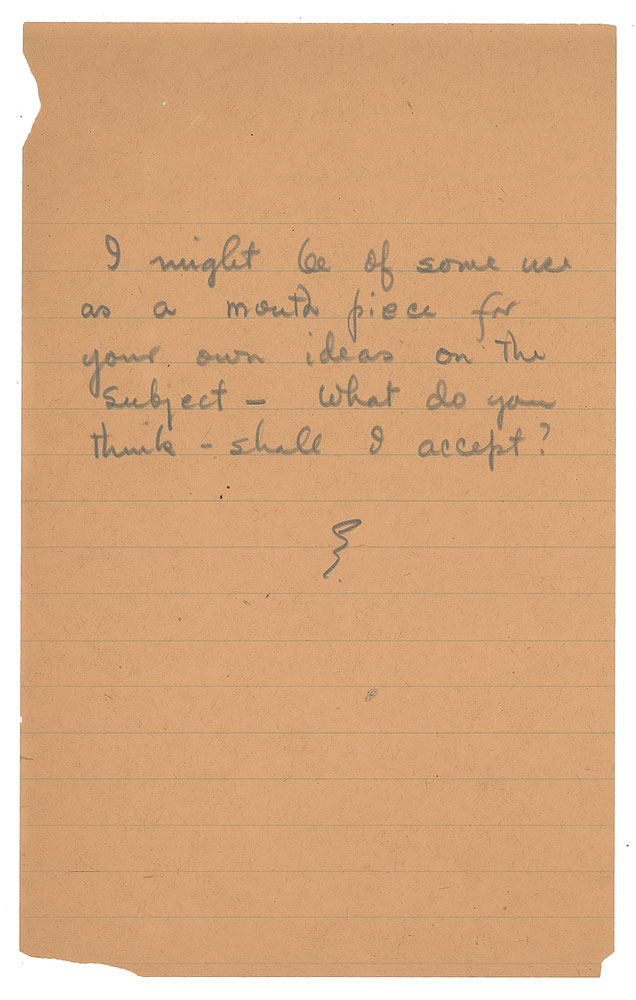 I might be of some use
as a mouth piece for
your own ideas on the
subject – What do you
think – shall I accept?